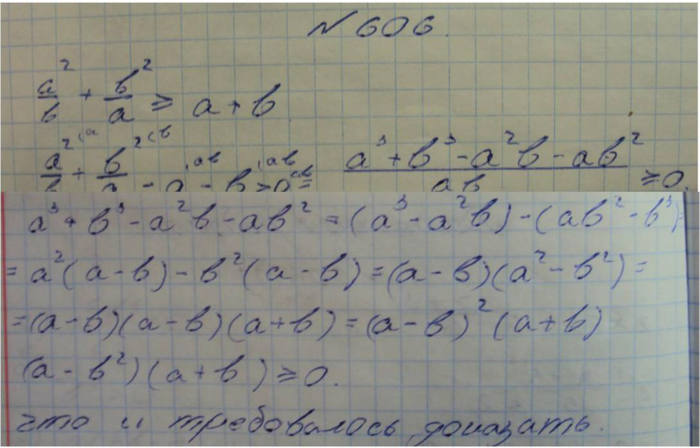 № 606.
a²/b + b²/a ≥ a + b
a²⁽ᵃ/b + b²⁽ᵇ/a - a⁽ᵃᵇ - b⁽ᵃᵇ ≥ 0⁽ᵃᵇ = (a³ + b³ - a²b - ab²)/ab ≥ 0.
a³ + b³ - a²b - ab² = (a³ - a²b) - (ab² - b³) =
= a²(a - b) - b²(a - b) = (a - b)(a² - b²) =
= (a - b)(a - b)(a + b) = (a - b)²(a + b)
(a - b²)(a + b) ≥ 0.
что и требовалось доказать.